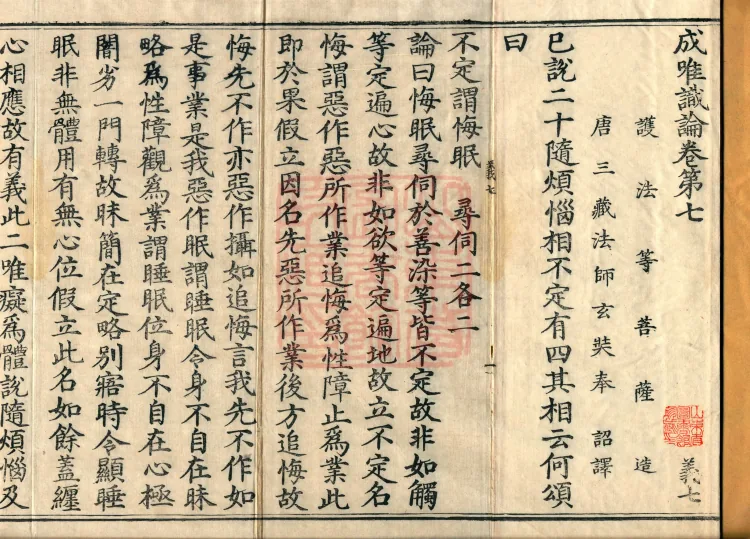 成唯識論卷第七 義七
護法等菩薩造
唐三藏法師玄奘奉 詔譯
已說二十隨煩惱相不定有四其相云何頌
曰
不定謂悔眠 尋伺二各二
論曰悔眠尋伺於善染等皆不定故非如觸
等定遍心故非如欲等定遍地故立不定名
悔謂惡作惡所作業追悔爲性障止爲業此
即於果假立因名先惡所作業後方追悔故
悔先不作亦惡作攝如追悔言我先不作如
是事業是我惡作眠謂睡眠令身不自在昧
略爲性障觀爲業謂睡眠位身不自在心極
闇劣一門轉故昧簡在定略別寤時令顯睡
眠非無體用有無心位假立此名如餘蓋纏
心相應故有義此二唯癡爲體說隨煩惱及